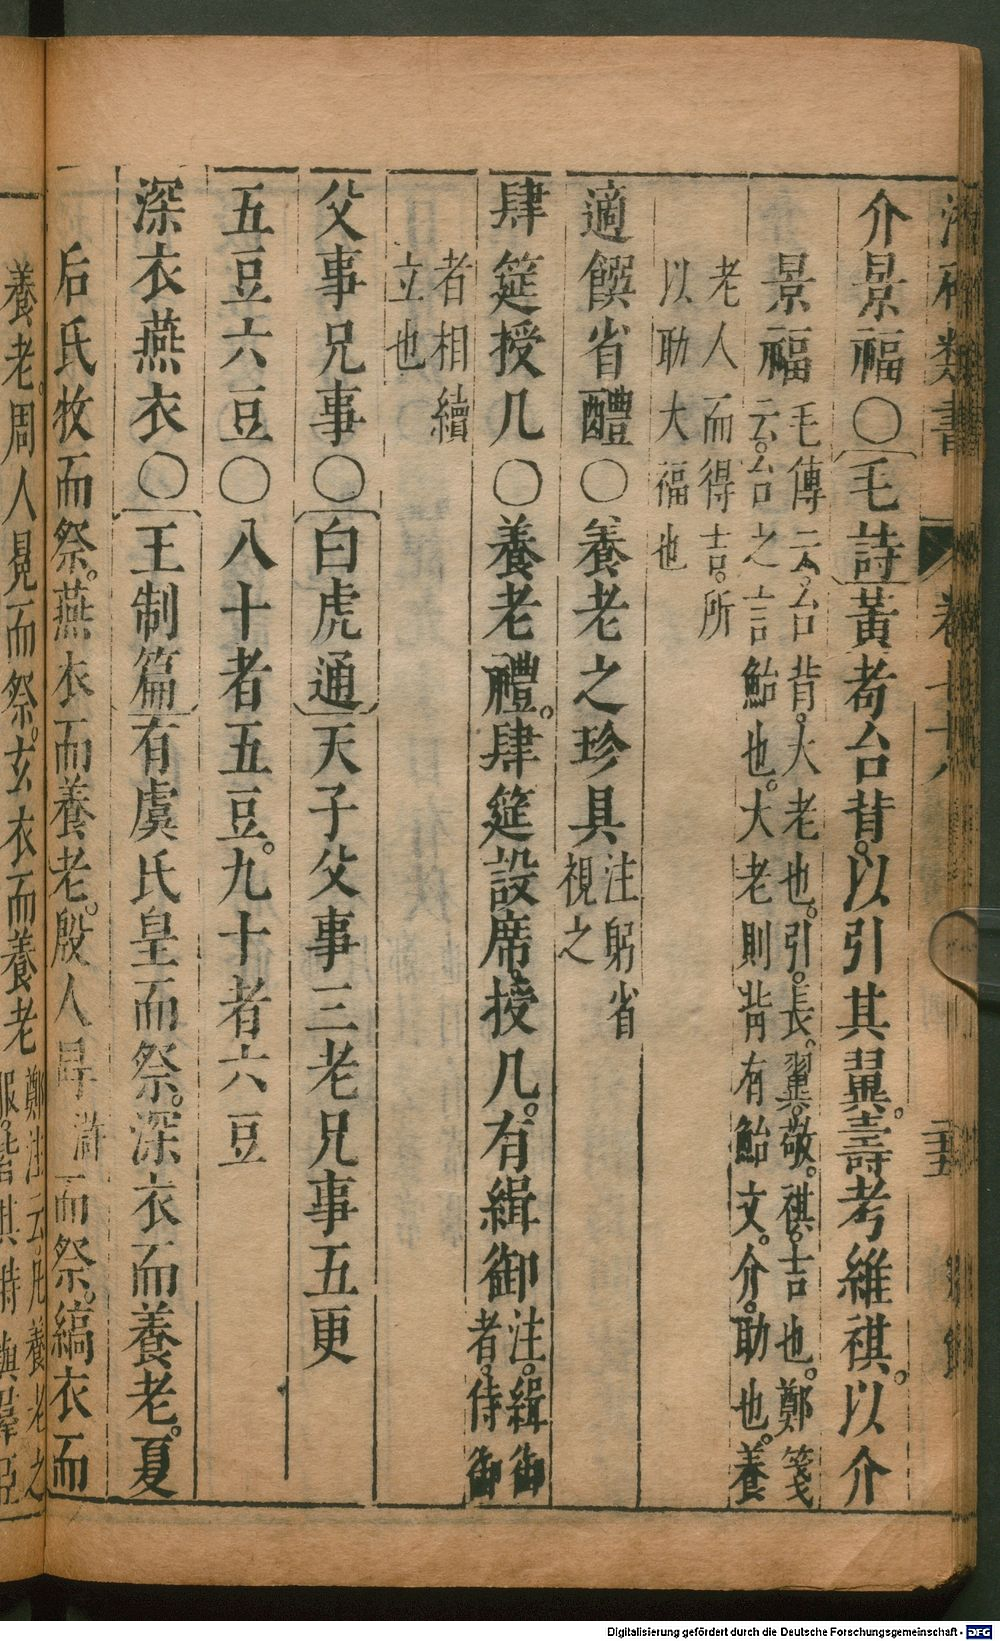 介景福○毛詩黃耇台背以引其翼壽考維祺以介
景福毛傳云台背大老也引長翼敬祺吉也鄭箋
云台之言鮐也大老則背有鮐文介助也養
老人而得吉所
以助大福也
適饌省醴○養老之珍具注躬省
視之
肆筵授几○養老禮肆筵設席授几有緝御注緝御
者侍御
者相續
立也
父事兄事○白虎通天子父事三老兄事五更
五豆六豆○八十者五豆九十者六豆
深衣燕衣○王制篇有虞氏皇而祭深衣而養老夏
后氏收而祭燕衣而養老殷人冔滸而祭縞衣而
養老周人冕而祭玄衣而養老鄭注云凡養老之
服皆其時與羣臣
Digitalisierung gefördert durch die Deutsche Forschungsgemeinschaft - DFG